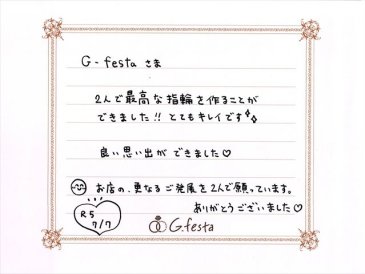 G-festa さま
2人で最高な指輪を作ることが
できました!! とてもキレイです✨
良い思い出ができました♡
お店の、更なるご発展を2人で願っています。
ありがとうございました♡
R5
7/7
G.festa